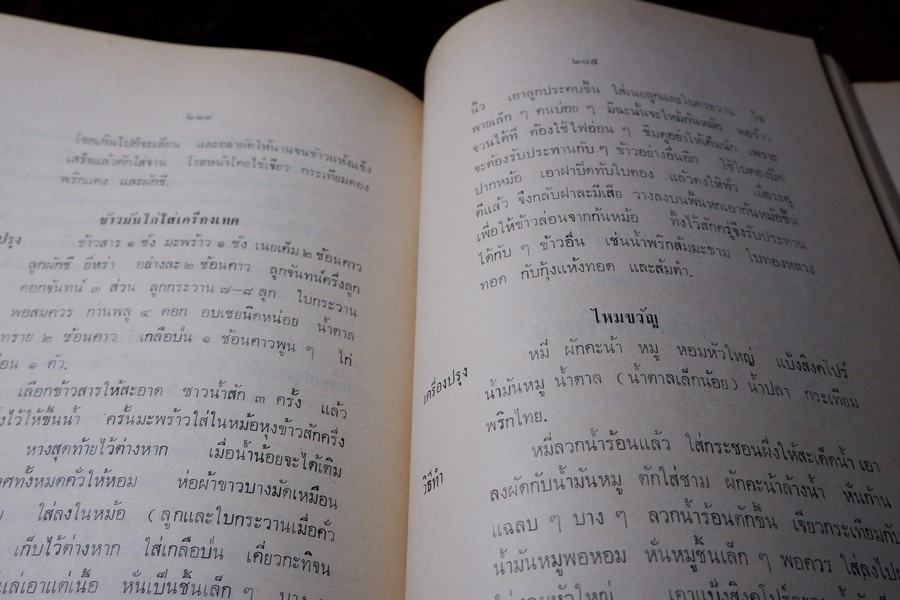 ๒๐๔
โขลกเกินไปก็จะเลี่ยน และอย่าผัดให้นานจนข้าวแห้งแข็ง
เสร็จแล้วตักใส่จาน โรยหน้าไก่ ไข่เจียว กระเทียมดอง
พริกแดง และผักชี.
ข้าวมันไก่ใส่เครื่องเทศ
ปรุง ข้าวสาร ๑ ชั่ง มะพร้าว ๑ ชั่ง เนยเค็ม ๒ ช้อนคาว
ลูกผักชี ยี่หร่า อย่างละ ๒ ช้อนคาว ลูกจันทน์ครึ่งลูก
ดอกจันทน์ ๓ ส่วน ลูกกระวาน ๗–๘ ลูก ใบกระวาน
พอสมควร กานพลู ๔ ดอก อบเชยนิดหน่อย น้ำตาล
ทราย ๒ ช้อนคาว เกลือป่น ๑ ช้อนคาวพูน ๆ ไก่
๑ ตัว.
เลือกข้าวสารให้สะอาด ซาวน้ำสัก ๓ ครั้ง แล้ว
ไว้ให้ขึ้นน้ำ คั้นมะพร้าวใส่ในหม้อหุงข้าวสักครึ่ง
หางสุดท้ายไว้ต่างหาก เมื่อน้ำน้อยจะได้เติม
ทั้งหมดคั่วให้หอม ห่อผ้าขาวบางมัดเหมือน
ใส่ลงในหม้อ (ลูกและใบกระวานเมื่อคั่ว
เก็บไว้ต่างหาก ใส่เกลือป่น เคี่ยวกะทิจน
แล่เอาแต่เนื้อ หั่นเป็นชิ้นเล็ก ๆ บาง
๒๐๕
นิ้ว เอาลูกประคบขึ้น ใส่เนยลูกและใบกระวาน ใช้
พายเล็ก ๆ คนบ่อย ๆ มิฉะนั้นจะไหม้ก้นหม้อ พอข้าว
จวนได้ที่ ต้องใช้ไฟอ่อน ๆ ชิมดูอย่าให้เค็มนัก เพราะ
จะต้องรับประทานกับ ๆ ข้าวอย่างอื่นอีก ใช้ใบตองปิด
ปากหม้อ เอาฝาปิดทับใบตอง แล้วดงให้ทั่ว เมื่อระอุ
ดีแล้ว จึงกลับฝาละมีเสีย วางลงบนพื้นหกเอาก้นหม้อขึ้น
เพื่อให้ข้าวล่อนจากก้นหม้อ ทิ้งไว้สักครู่จึงรับประทาน
ได้กับ ๆ ข้าวอื่น เช่นน้ำพริกส้มมะขาม ใบทองหลาง
ทอด กับกุ้งแห้งทอด และส้มตำ.
ไหมขวัญ
เครื่องปรุง หมี่ ผักคะน้า หมู หอมหัวใหญ่ แป้งสิงคโปร์
น้ำมันหมู น้ำตาล (น้ำตาลเล็กน้อย) น้ำปลา กระเทียม
พริกไทย.
วิธีทำ หมี่ลวกน้ำร้อนแล้ว ใส่กระชอนผึ่งให้สะเด็ดน้ำ เอา
ลงผัดกับน้ำมันหมู ตักใส่ชาม ผักคะน้าล้างน้ำ หั่นก้าน
แฉลบ ๆ บาง ๆ ลวกน้ำร้อนตักขึ้น เจียวกระเทียมกับ
น้ำมันหมูพอหอม หั่นหมูชิ้นเล็ก ๆ พอควร ใส่ลงไป
หัวใหญ่ เอาแป้งสิงคโปร์